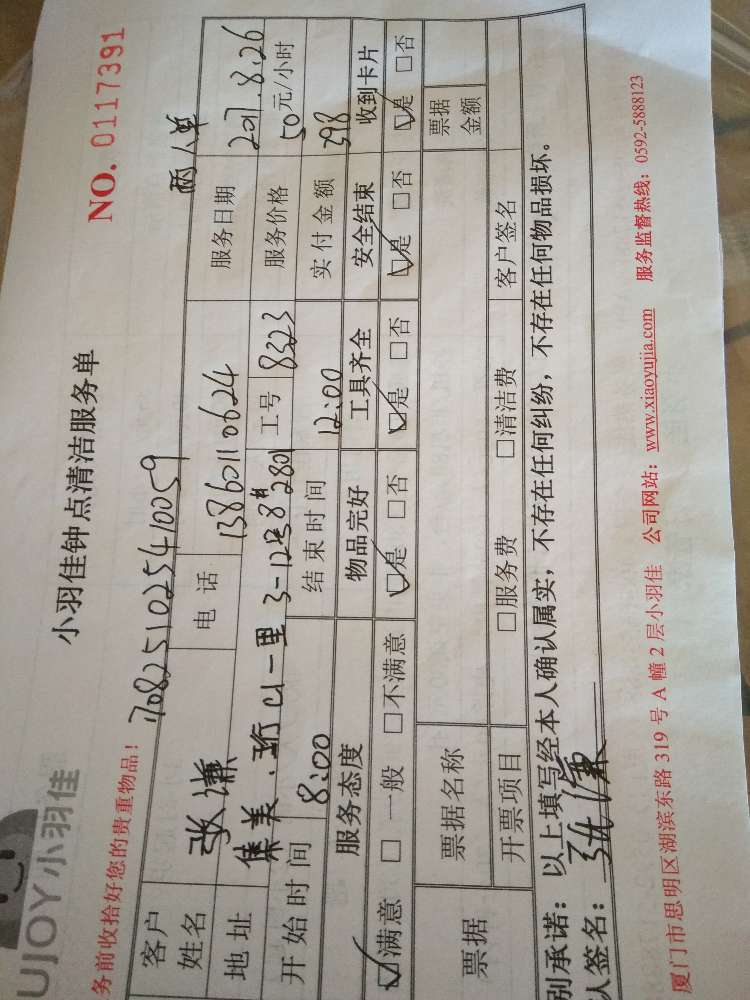 UJOY小羽佳
小羽佳钟点清洁服务单
NO. 0117391
务前收拾好您的贵重物品!
1708251025410059
两人单
客户姓名 张谦 电话 13860110624 服务日期 2017.8.26
地址 集美·珩山一里3-12号8#2801 工号 8323 服务价格 50元/小时
开始时间 8:00 结束时间 12:00 实付金额 398
服务态度 物品完好 工具齐全 安全结束 收到卡片
☑满意 □一般 □不满意 ☑是 □否 ☑是 □否 ☑是 □否 ☑是 □否
票据 票据名称 票据金额
开票项目 □服务费 □清洁费 客户签名
别承诺:以上填写经本人确认属实,不存在任何纠纷,不存在任何物品损坏。
人签名:张谦
厦门市思明区湖滨东路 319 号 A 幢 2 层小羽佳 公司网站:www.xiaoyujia.com 服务监督热线:0592-5888123